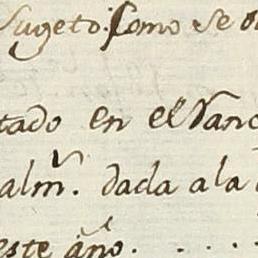 Sugeto. Como se
tado en el Ranc
alm.te dada a la
este año. . . . .